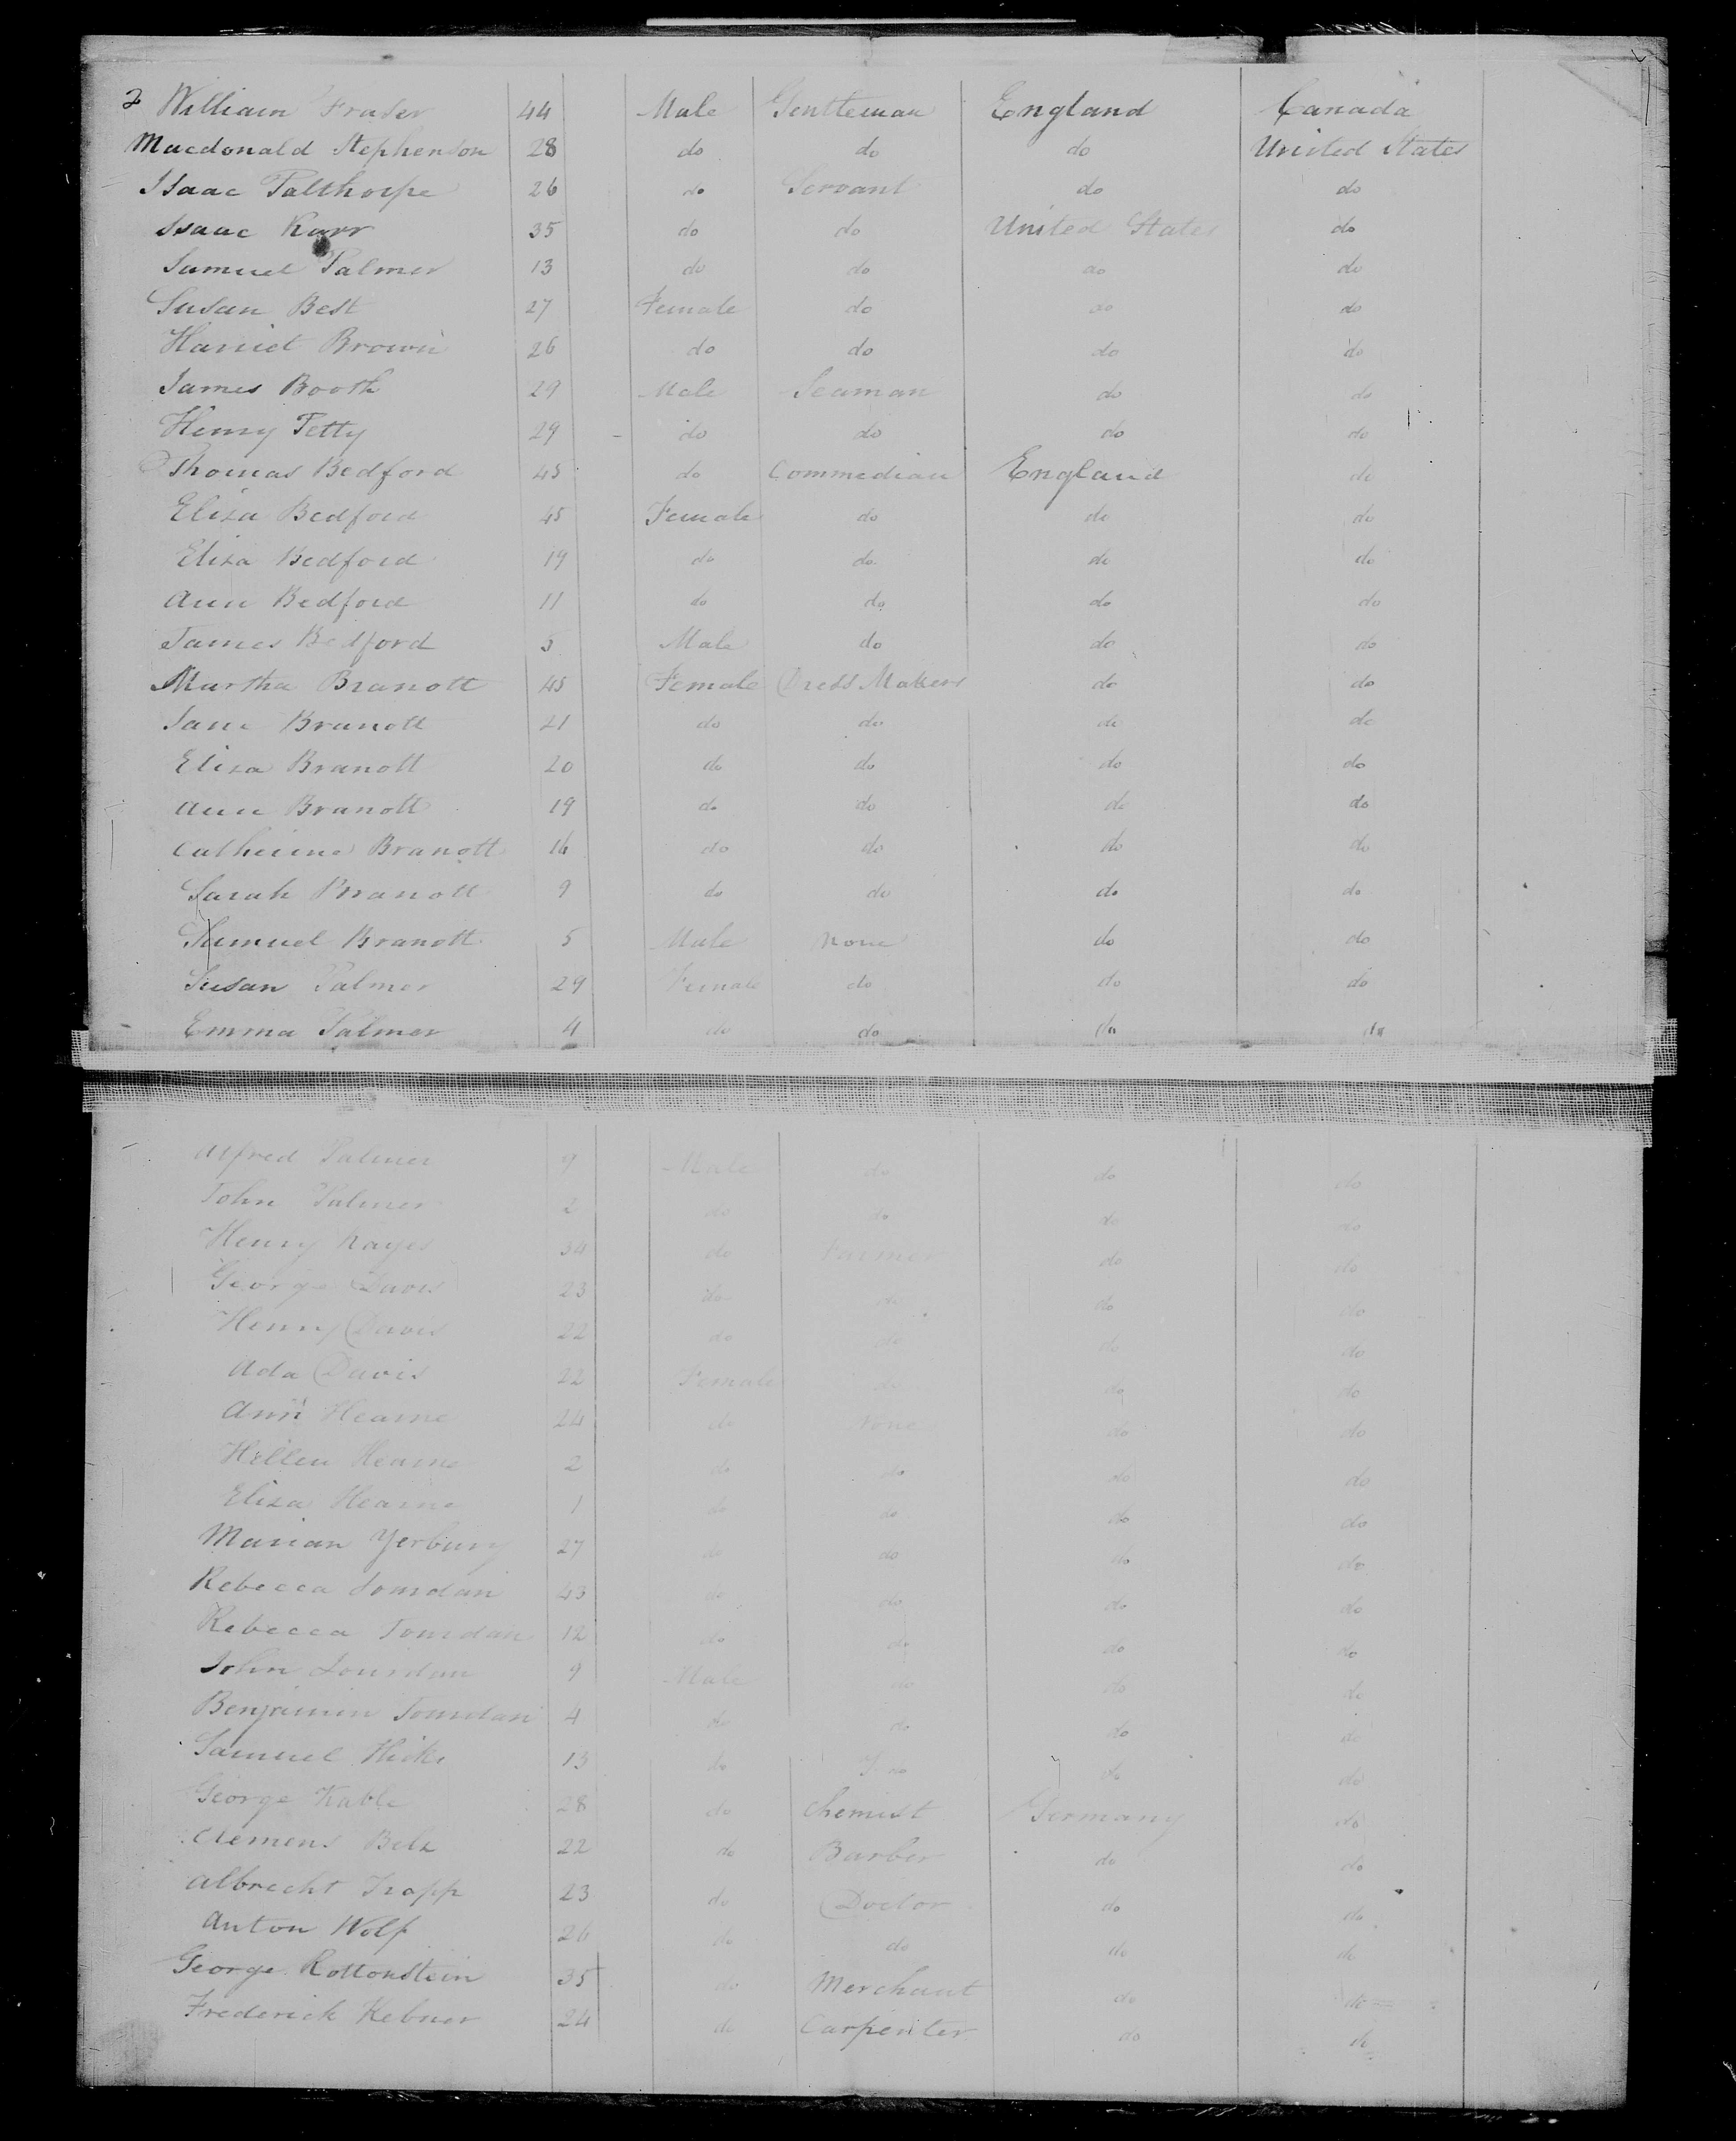 2 William Fraser 44 Male Gentleman England Canada
Macdonald Stephenson 28 do do do United States
Isaac Palthorpe 26 do Servant do do
Isaac Karr 35 do do United States do
Samuel Palmer 13 do do do do
Susan Best 27 Female do do do
Harriet Brown 26 do do do do
James Booth 29 Male Seaman do do
Henry Tetty 29 do do do do
Thomas Bedford 45 do Commedian England do
Eliza Bedford 45 Female do do do
Eliza Bedford 19 do do do do
Ann Bedford 11 do do do do
James Bedford 5 Male do do do
Martha Branott 45 Female Dress Makers do do
Jane Branott 21 do do do do
Eliza Branott 20 do do do do
Ann Branott 19 do do do do
Catherine Branott 16 do do do do
Sarah Branott 9 do do do do
Samuel Branott 5 Male None do do
Susan Palmer 29 Female do do do
Emma Palmer 4 do do do do
Alfred Palmer 9 Male do do do
John Palmer 2 do do do do
Henry Kayes 34 do Farmer do do
George Davis 23 do do do do
Henry Davis 22 do do do do
Ada Davis 22 Female do do do
Ann Hearne 24 do None do do
Hellen Hearne 2 do do do do
Eliza Hearne 1 do do do do
Marian Yerbury 27 do do do do
Rebecca Jourdan 43 do do do do
Rebecca Jourdan 12 do do do do
John Jourdan 9 Male do do do
Benjamin Jourdan 4 do do do do
Samuel Hicks 13 do do do do
George Kable 28 do Chemist Germany do
Clemens Belz 22 do Barber do do
Albrecht Trapp 23 do Doctor do do
Anton Wolf 26 do do do do
George Rottonstein 35 do Merchant do do
Frederick Hebner 24 do Carpenter do do